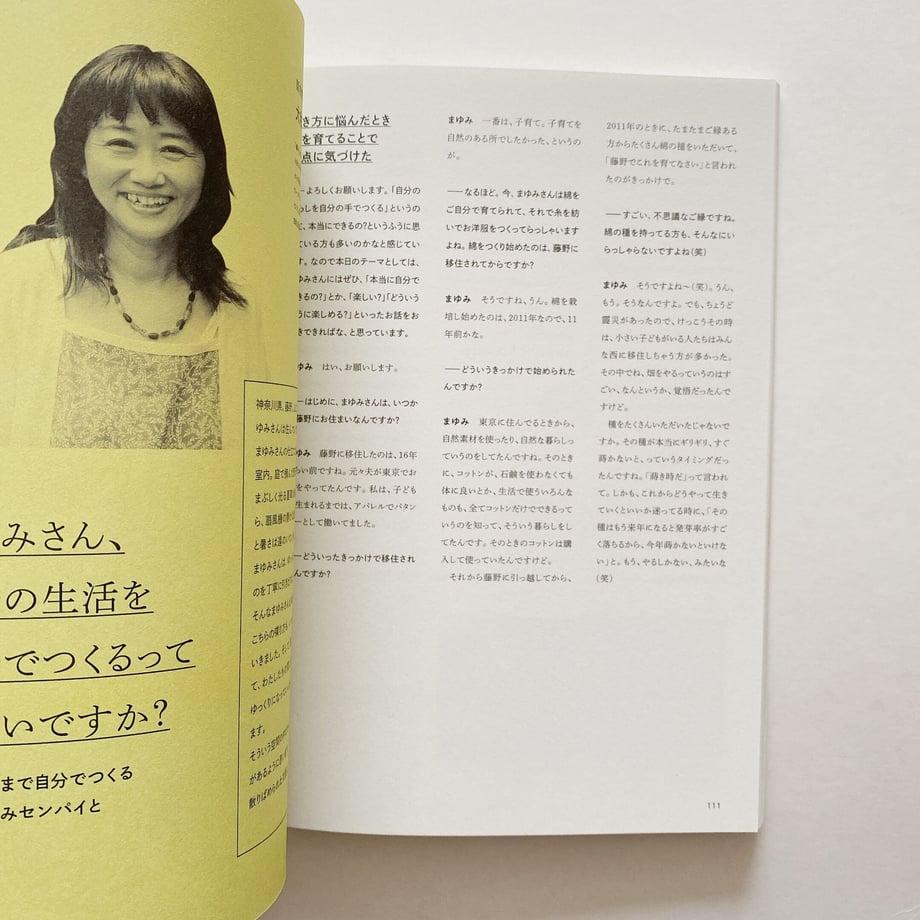 みさん、
の生活を
でつくるって
いですか?
まで自分でつくる
みセンパイと
神奈川県、藤野。
ゆみさんは住んで
まゆみさんの
室内。庭で
まぶしく光る
ら、扇風機の
と暑さは
まゆみさんは、
のを丁寧に
そんなまゆみさん
こちらの
いきました。
て、わたしたちの
ゆっくりになって
ます。
そういう空間
があるように
散りばめられ
き方に悩んだとき
を育てることで
点に気づけた
―よろしくお願いします。「自分の
らしを自分の手でつくる」というの
、本当にできるの?というふうに思
ている方も多いのかなと感じてい
す。なので本日のテーマとしては、
ゆみさんにはぜひ、「本当に自分で
きるの?」とか、「楽しい?」「どういう
うに楽しめる?」といったお話をお
きできればな、と思っています。
ゆみ はい、お願いします。
―はじめに、まゆみさんは、いつか
藤野にお住まいなんですか?
ゆみ 藤野に移住したのは、16年
らい前ですね。元々夫が東京でお
をやってたんです。私は、子ども
生まれるまでは、アパレルでパタン
ーとして働いてました。
―どういったきっかけで移住され
んですか?
まゆみ 一番は、子育て。子育てを
自然のある所でしたかった、というの
が。
――なるほど。今、まゆみさんは綿を
ご自分で育てられて、それで糸を紡
いでお洋服をつくってらっしゃいます
よね。綿をつくり始めたのは、藤野に
移住されてからですか?
まゆみ そうですね、うん。綿を栽
培し始めたのは、2011年なので、11
年前かな。
――どういうきっかけで始められた
んですか?
まゆみ 東京に住んでるときから、
自然素材を使ったり、自然な暮らしっ
ていうのをしてたんですね。そのとき
に、コットンが、石鹸を使わなくても
体に良いとか、生活で使ういろんな
ものも、全てコットンだけでできるって
いうのを知って、そういう暮らしをし
てたんです。そのときのコットンは購
入して使っていたんですけど。
それから藤野に引っ越してから、
2011年のときに、たまたまご縁ある
方からたくさん綿の種をいただいて、
「藤野でこれを育てなさい」と言われ
たのがきっかけで。
――すごい、不思議なご縁ですね。
綿の種を持ってる方も、そんなにい
らっしゃらないですよね(笑)
まゆみ そうですよね〜(笑)。うん、
もう。そうなんですよ。でも、ちょうど
震災があったので、けっこうその時
は、小さい子どもがいる人たちはみん
な西に移住しちゃう方が多かった。
その中でね、畑をやるっていうのはす
ごい、なんというか、覚悟だったんで
すけど。
種をたくさんいただいたじゃないで
すか。その種が本当にギリギリ、すぐ
蒔かないと、っていうタイミングだっ
たんですね。「蒔き時だ」って言われ
て。しかも、これからどうやって生き
ていくといいか迷ってる時に、「その
種はもう来年になると発芽率がすご
く落ちるから、今年蒔かないといけな
い」と。もう、やるしかない、みたいな
(笑)
111